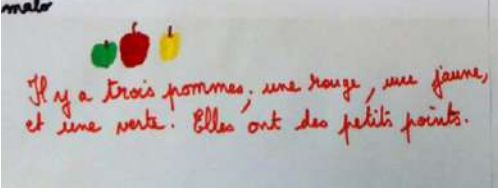 malo
Il y a trois pommes; une rouge, une jaune,
et une verte. Elles ont des petits points.